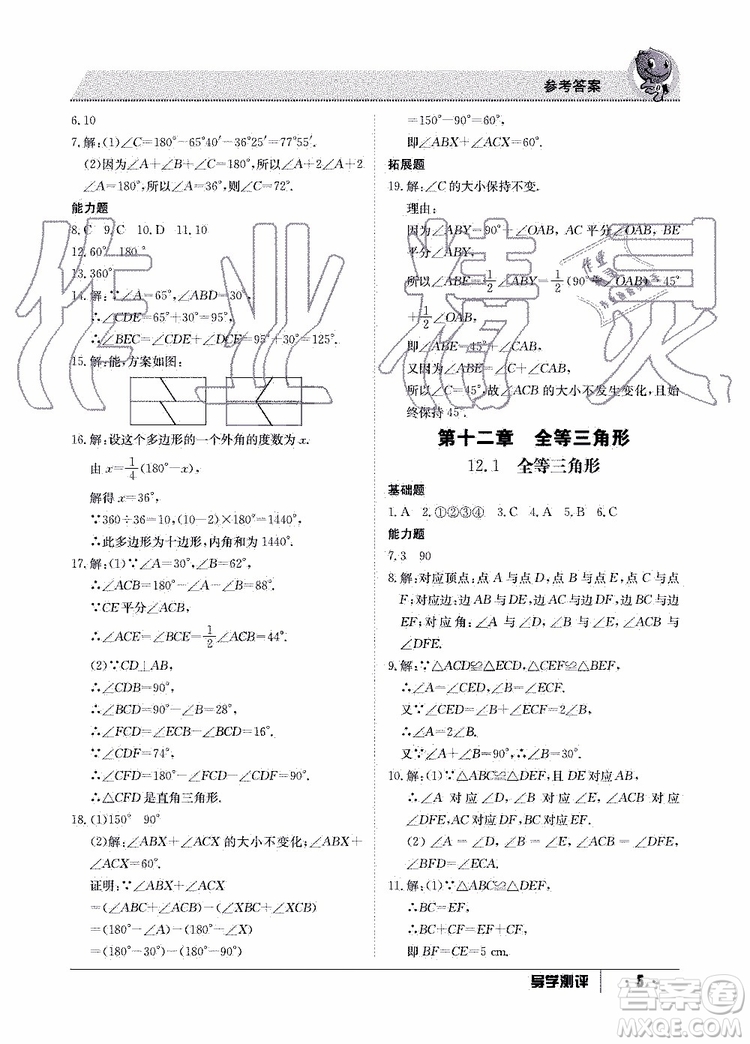 参考答案
6.10
7.解:(1)∠C=180°-65°45′-36°50′=77°55′.
(2)因为∠A+∠B+∠C=180°,所以∠A+2∠A+2
∠A=180°,所以∠A=36°,则∠C=72°.
能力题
8.C 9.C 10.D 11.10
12.60° 180°
13.360°
14.解:∵∠A=65°,∠ABD=30°,
∴∠CDE=65°+30°=95°,
∴∠BEC=∠CDE+∠DCE=95°+30°=125°.
15.解:能,方案如图:
16.解:设这个多边形的一个外角的度数为x.
由x=1/4(180°-x),
解得x=36°,
∵360÷36=10,(10-2)×180°=1440°,
∴此多边形为十边形,内角和为1440°.
17.解:(1)∵∠A=30°,∠B=62°,
∴∠ACB=180°-∠A-∠B=88°.
∵CE平分∠ACB,
∴∠ACE=∠BCE=1/2∠ACB=44°.
(2)∵CD⊥AB,
∴∠CDB=90°,
∴∠BCD=90°-∠B=28°,
∴∠FCD=∠ECB-∠BCD=16°.
∵∠CDF=74°,
∴∠CFD=180°-∠FCD-∠CDF=90°,
∴△CFD是直角三角形.
18.(1)150° 90°
(2)解:∠ABX+∠ACX的大小不变化;∠ABX+
∠ACX=60°.
证明:∵∠ABX+∠ACX
=(∠ABC+∠ACB)-(∠XBC+∠XCB)
=(180°-∠A)-(180°-∠X)
=(180°-30°)-(180°-90°)
=150°-90°=60°,
即∠ABX+∠ACX=60°.
拓展题
19.解:∠C的大小保持不变.
理由:
因为∠ABY=90°+∠OAB,AC平分∠OAB,BE
平分∠ABY,
所以∠ABE=1/2∠ABY=1/2(90°+∠OAB)=45°
+1/2∠OAB,
即∠ABE=45°+∠CAB.
又因为∠ABE=∠C+∠CAB,
所以∠C=45°,故∠ACB的大小不发生变化,且始
终保持45°.
第十二章 全等三角形
12.1 全等三角形
基础题
1.A 2.①②③④ 3.C 4.D 5.B 6.C
能力题
7.3 90
8.解:对应顶点:点A与点D,点B与点E,点C与点
F;对应边:边AB与DE,边AC与DF,边BC与
EF;对应角:∠A与∠D,∠B与∠E,∠ACB与
∠DFE.
9.解:∵△ACD≌△ECD,△CEF≌△BEF,
∴∠A=∠CED,∠B=∠ECF.
又∵∠CED=∠B+∠ECF=2∠B,
∴∠A=2∠B.
又∵∠A+∠B=90°,∴∠B=30°.
10.解:(1)∵△ABC≌△DEF,且DE对应AB,
∴∠A 对应 ∠D,∠B 对应 ∠E,BC 对应
EF,AC对应DF,∠ACB对应∠DFE.
(2) ∠A = ∠D,∠B = ∠E,∠ACB = ∠DFE,
∠BFD=∠ECA.
11.解:(1)∵△ABC≌△DEF,
∴BC=EF,
∴BC+CF=EF+CF,
即BF=CE=5 cm.
导学测评
5
作业精灵
答案圈
MXQE.COM